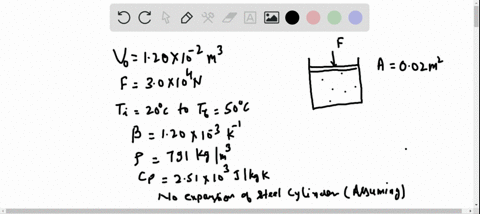 V₀ = 1.20 × 10⁻² m³
F = 3.0 × 10⁴ N
Tᵢ = 20°C to T_f = 50°C
β = 1.20 × 10⁻³ K⁻¹
ρ = 791 kg/m³
Cₚ = 2.51 × 10³ J/kg K
No expansion of steel cylinder (Assuming)
F
A = 0.02 m²